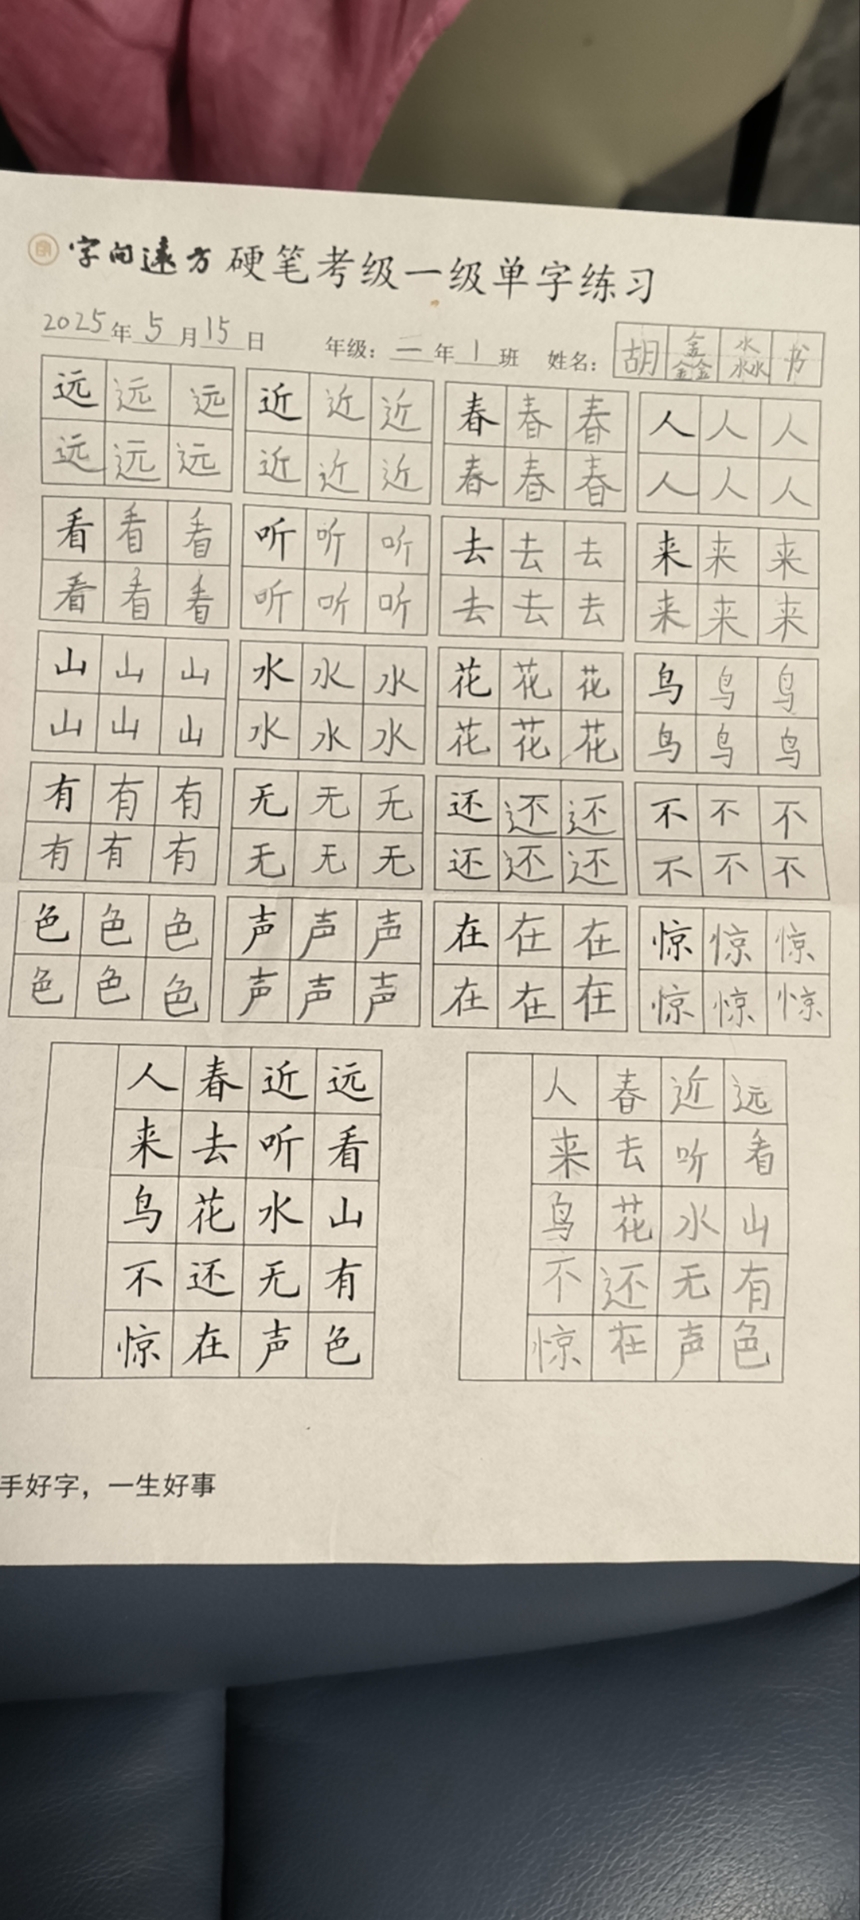 字向远方 硬笔考级一级单字练习
2025年5月15日 年级：二年1班 姓名：胡鑫淼书
远远远 近近近 春春春 人人人
远远远 近近近 春春春 人人人
看看看 听听听 去去去 来来来
看看看 听听听 去去去 来来来
山山山 水水水 花花花 鸟鸟鸟
山山山 水水水 花花花 鸟鸟鸟
有有有 无无无 还还还 不不不
有有有 无无无 还还还 不不不
色色色 声声声 在在在 惊惊惊
色色色 声声声 在在在 惊惊惊
人春近远 人春近远
来去听看 来去听看
鸟花水山 鸟花水山
不还无有 不还无有
惊在声色 惊在声色
手好字，一生好事